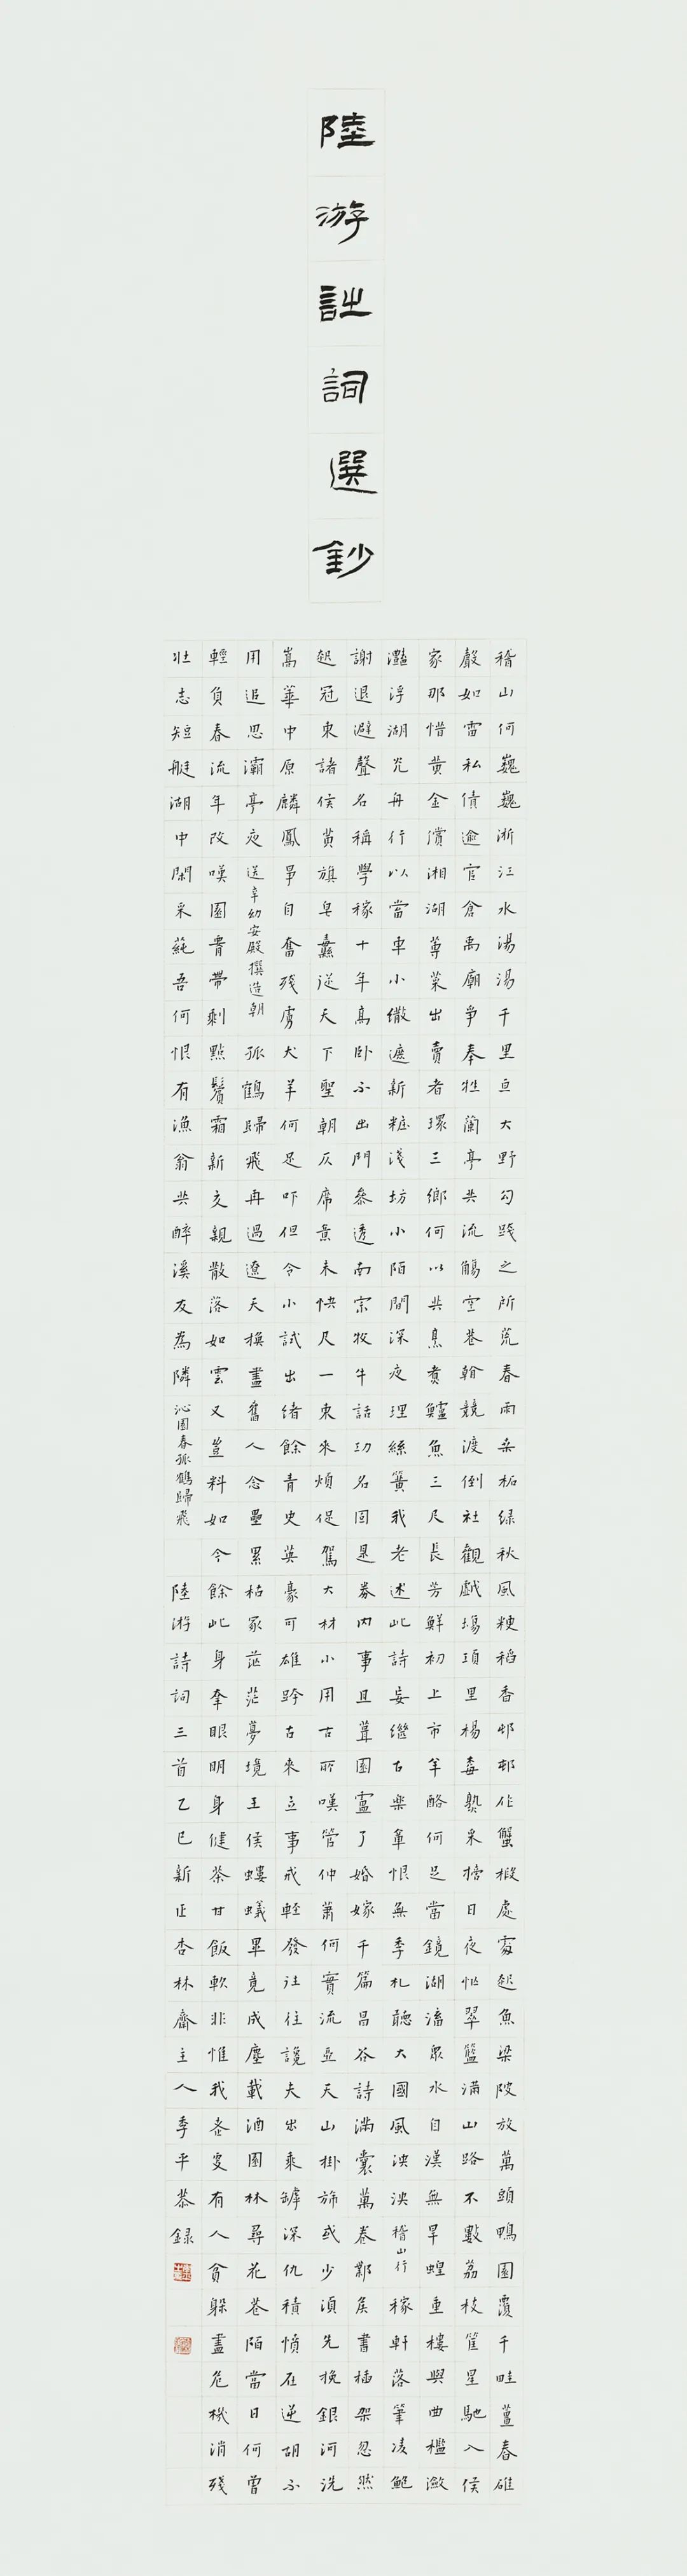 陸游詩詞選鈔
稽山何巍巍浙江水湯湯千里亘大野勾踐之所荒春雨桑柘綠秋風粳稻香邨邨作蟹椵處處起魚梁陂放萬頭鴨園覆千畦薑春碓
聲如雷私債逾官倉禹廟爭奉牲蘭亭共流觴空巷看競渡倒社觀戲場項里楊梅熟采摘日夜忙翠籃滿山路不數荔枝筐星馳入侯
家那惜黃金償湘湖蓴菜出賣者環三鄉何以共烹煮鱸魚三尺長芳鮮初上市羊酪何足當鏡湖瀦衆水自漢無旱蝗重樓與曲檻瀲
灩浮湖光舟行以當車小繖遮新粧淺坊小陌間深夜理絲簧我老述此詩妄繼古樂章恨無季札聽大國風泱泱稽山行稼軒落筆凌鮑
謝退避聲名稱學稼十年高臥不出門參透南宗牧牛話功名固是券內事且葺園廬了婚嫁千篇昌谷詩滿囊萬卷鄴侯書插架忽然
起冠東諸侯黃旗皂纛從天下聖朝仄席意未快尺一東來煩促駕大材小用古所嘆管仲蕭何實流亞天山掛旆或少須先挽銀河洗
嵩華中原麟鳳爭自奮殘虜犬羊何足嚇但令小試出緒餘青史英豪可雄跨古來立事戒輕發往往讒夫出乘罅深仇積憤在逆胡不
用追思灞亭夜送辛幼安殿撰造朝孤鶴歸飛再過遼天換盡舊人念纍纍枯冢茫茫夢境王侯螻蟻畢竟成塵載酒園林尋花巷陌當日何曾
輕負春流年改嘆圍腰帶剩點鬢霜新交親散落如雲又豈料如今餘此身幸眼明身健茶甘飯軟非惟我老更有人貧躲盡危機消殘
壯志短艇湖中閑采蓴吾何恨有漁翁共醉溪友為隣沁園春孤鶴歸飛 陸游詩詞三首乙巳新正杏林齋主人季平恭録